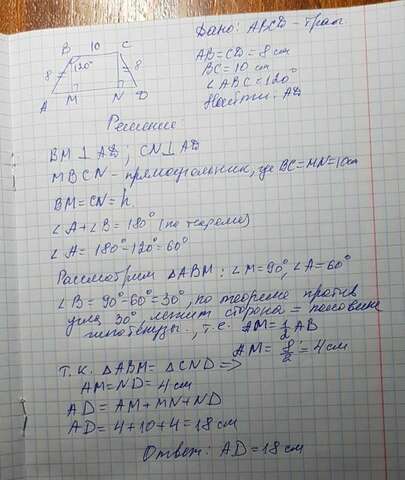 Дано: ABCD - трап
B 10 C
8 120° 8
A M N D
AB=CD=8см
BC=10 см
∠ABC=120°
Найти: AD
Решение:
BM⊥AD; CN⊥AD
MBCN - прямоугольник, где BC=MN=10см
BM=CN=h
∠A+∠B=180° (по теореме)
∠A=180°-120°=60°
Рассмотрим △ABM: ∠M=90°, ∠A=60°
∠B=90°-60°=30°, по теореме против
угла 30°, лежит сторона = половине
гипотенузы, т.е. AM=1/2 AB
AM=8/2=4см
Т.К. △ABM=△CND =>
AM=ND=4см
AD=AM+MN+ND
AD=4+10+4=18см
Ответ: AD=18см